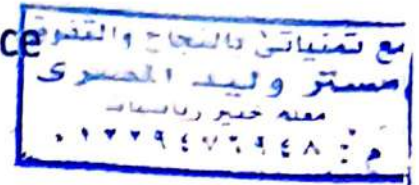 ce
مع تمنياتى بالنجاح والتفوق
مستر وليد المصرى
معلم خبير رياضيات
م :